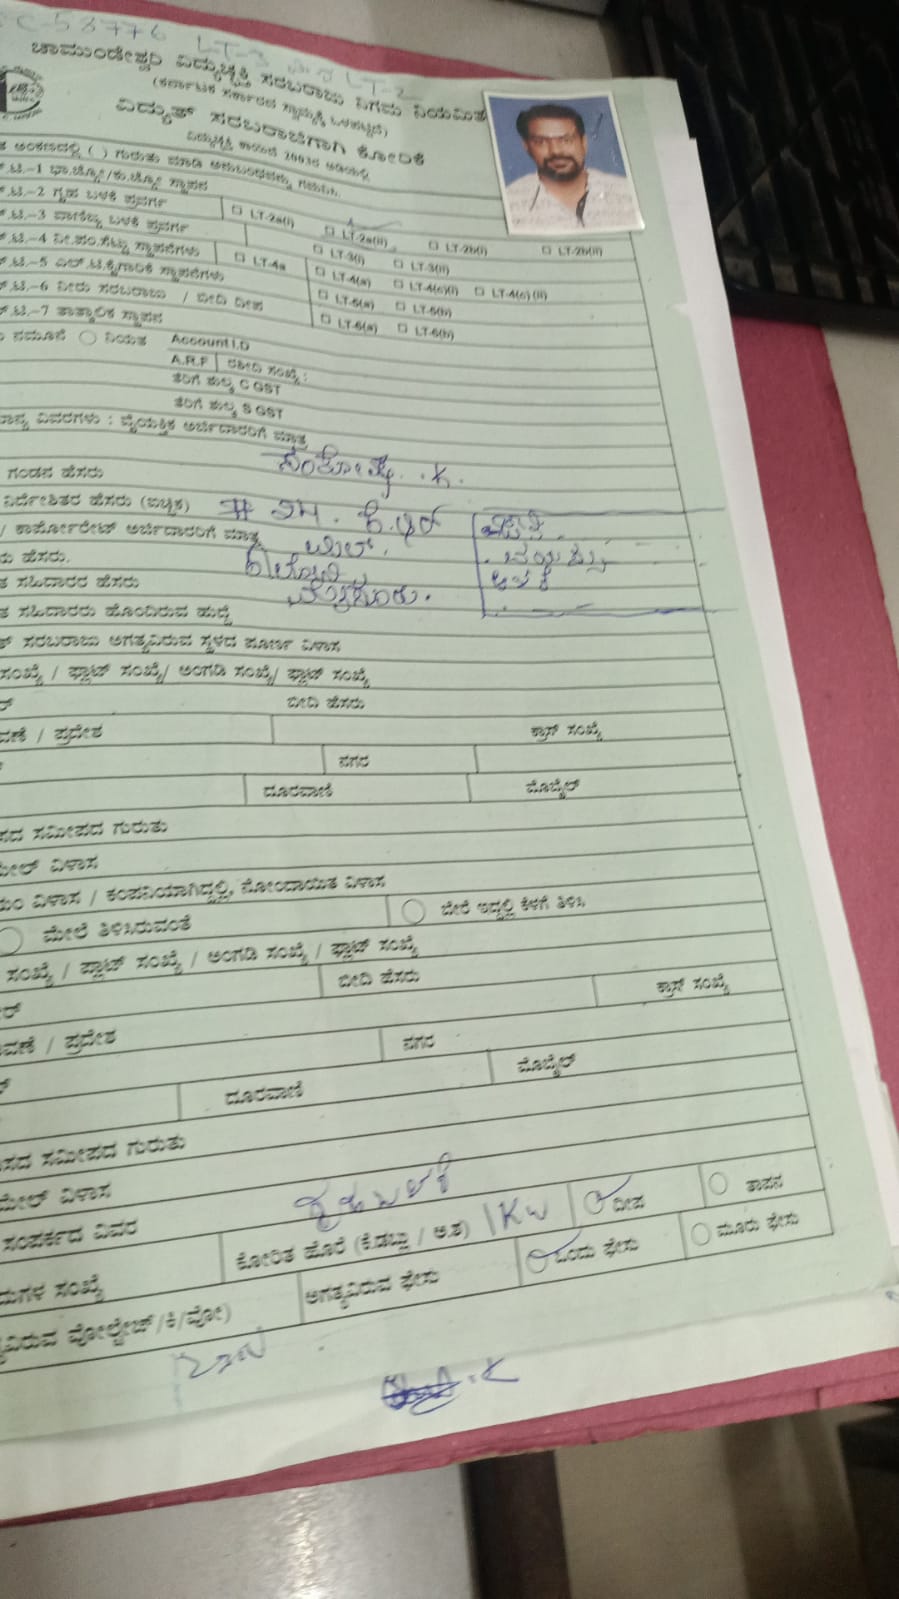 SC-58776 LT-3 ಇಂದ LT-2
ಚಾಮುಂಡೇಶ್ವರಿ ವಿದ್ಯುಚ್ಛಕ್ತಿ ಸರಬರಾಜು ನಿಗಮ ನಿಯಮಿತ
(ಕರ್ನಾಟಕ ಸರ್ಕಾರದ ಸ್ವಾಮ್ಯಕ್ಕೆ ಒಳಪಟ್ಟಿದೆ)
ವಿದ್ಯುತ್ ಸರಬರಾಜಿಗಾಗಿ ಕೋರಿಕೆ
ವಿದ್ಯುಚ್ಛಕ್ತಿ ಕಾಯಿದೆ 2003ರ ಅಡಿಯಲ್ಲಿ
ಅಂಕಣದಲ್ಲಿ ( ) ಗುರುತು ಮಾಡಿ ಅನುಬಂಧವನ್ನು ಗಮನಿಸಿ.
.ಟಿ.-1 ಭಾ.ಜ್ಯೋ/ಕು.ಜ್ಯೋ ಸ್ಥಾಪನ
.ಟಿ.-2 ಗೃಹ ಬಳಕೆ ಪ್ರವರ್ಗ LT-2a(i) LT-2a(ii) LT-2b(i) LT-2b(ii)
.ಟಿ.-3 ವಾಣಿಜ್ಯ ಬಳಕೆ ಪ್ರವರ್ಗ LT-3(i) LT-3(ii)
.ಟಿ.-4 ನೀ.ಪಂ.ಸೆಟ್ಟು ಸ್ಥಾಪನೆಗಳು LT-4a LT-4(a) LT-4(c)(i) LT-4(c)(ii)
.ಟಿ.-5 ಎಲ್.ಟಿ.ಕೈಗಾರಿಕೆ ಸ್ಥಾಪನೆಗಳು LT-5(a) LT-5(b)
.ಟಿ.-6 ನೀರು ಸರಬರಾಜು / ಬೀದಿ ದೀಪ LT-6(a) LT-6(b)
.ಟಿ.-7 ತಾತ್ಕಾಲಿಕ ಸ್ಥಾಪನ
ನಮೂನೆ ನಿಯತ Account I.D
A.R.F ರಶೀದಿ ಸಂಖ್ಯೆ :
ತೆರಿಗೆ ಶುಲ್ಕ C GST
ತೆರಿಗೆ ಶುಲ್ಕ S GST
ವಿವರಗಳು : ವೈಯಕ್ತಿಕ ಅರ್ಜಿದಾರರಿಗೆ ಮಾತ್ರ
ಗಂಡನ ಹೆಸರು ಸಂತೋಷ್ .ಕೆ.
ನಿರ್ದೇಶಿತರ ಹೆಸರು (ಐಚ್ಛಿಕ)
/ ಕಾರ್ಪೋರೇಟ್ ಅರ್ಜಿದಾರರಿಗೆ ಮಾತ್ರ
ಹೆಸರು.
ಸಹಿದಾರರ ಹೆಸರು ಮೈಸೂರು.
ಸಹಿದಾರರು ಹೊಂದಿರುವ ಹುದ್ದೆ
ಸರಬರಾಜು ಅಗತ್ಯವಿರುವ ಸ್ಥಳದ ಪೂರ್ಣ ವಿಳಾಸ
ಸಂಖ್ಯೆ / ಪ್ಲಾಟ್ ಸಂಖ್ಯೆ/ ಅಂಗಡಿ ಸಂಖ್ಯೆ/ ಫ್ಲಾಟ್ ಸಂಖ್ಯೆ
ಬೀದಿ ಹೆಸರು
/ ಪ್ರದೇಶ ಕ್ರಾಸ್ ಸಂಖ್ಯೆ
ನಗರ
ದೂರವಾಣಿ ಮೊಬೈಲ್
ಸಮೀಪದ ಗುರುತು
ವಿಳಾಸ
ವಿಳಾಸ / ಕಂಪನಿಯಾಗಿದ್ದಲ್ಲಿ, ನೋಂದಾಯಿತ ವಿಳಾಸ
ಮೇಲೆ ತಿಳಿಸಿರುವಂತೆ ಬೇರೆ ಇದ್ದಲ್ಲಿ ಕೆಳಗೆ ತಿಳಿಸಿ
ಸಂಖ್ಯೆ / ಪ್ಲಾಟ್ ಸಂಖ್ಯೆ / ಅಂಗಡಿ ಸಂಖ್ಯೆ / ಫ್ಲಾಟ್ ಸಂಖ್ಯೆ
ಬೀದಿ ಹೆಸರು
/ ಪ್ರದೇಶ ಕ್ರಾಸ್ ಸಂಖ್ಯೆ
ನಗರ
ದೂರವಾಣಿ ಮೊಬೈಲ್
ಸಮೀಪದ ಗುರುತು
ವಿಳಾಸ
ಸಂಪರ್ಕದ ವಿವರ ಗೃಹಬಳಕೆ
ಸಂಖ್ಯೆ ಕೋರಿತ ಹೊರೆ (ಕೆ.ಡಬ್ಲ್ಯು / ಅ.ಶ) 1KW ದೀಪ ತಾಪನ
ವೋಲ್ಟೇಜ್/ಕಿ/ವೋ) ಅಗತ್ಯವಿರುವ ಫೇಸು ಒಂದು ಫೇಸು ಮೂರು ಫೇಸು